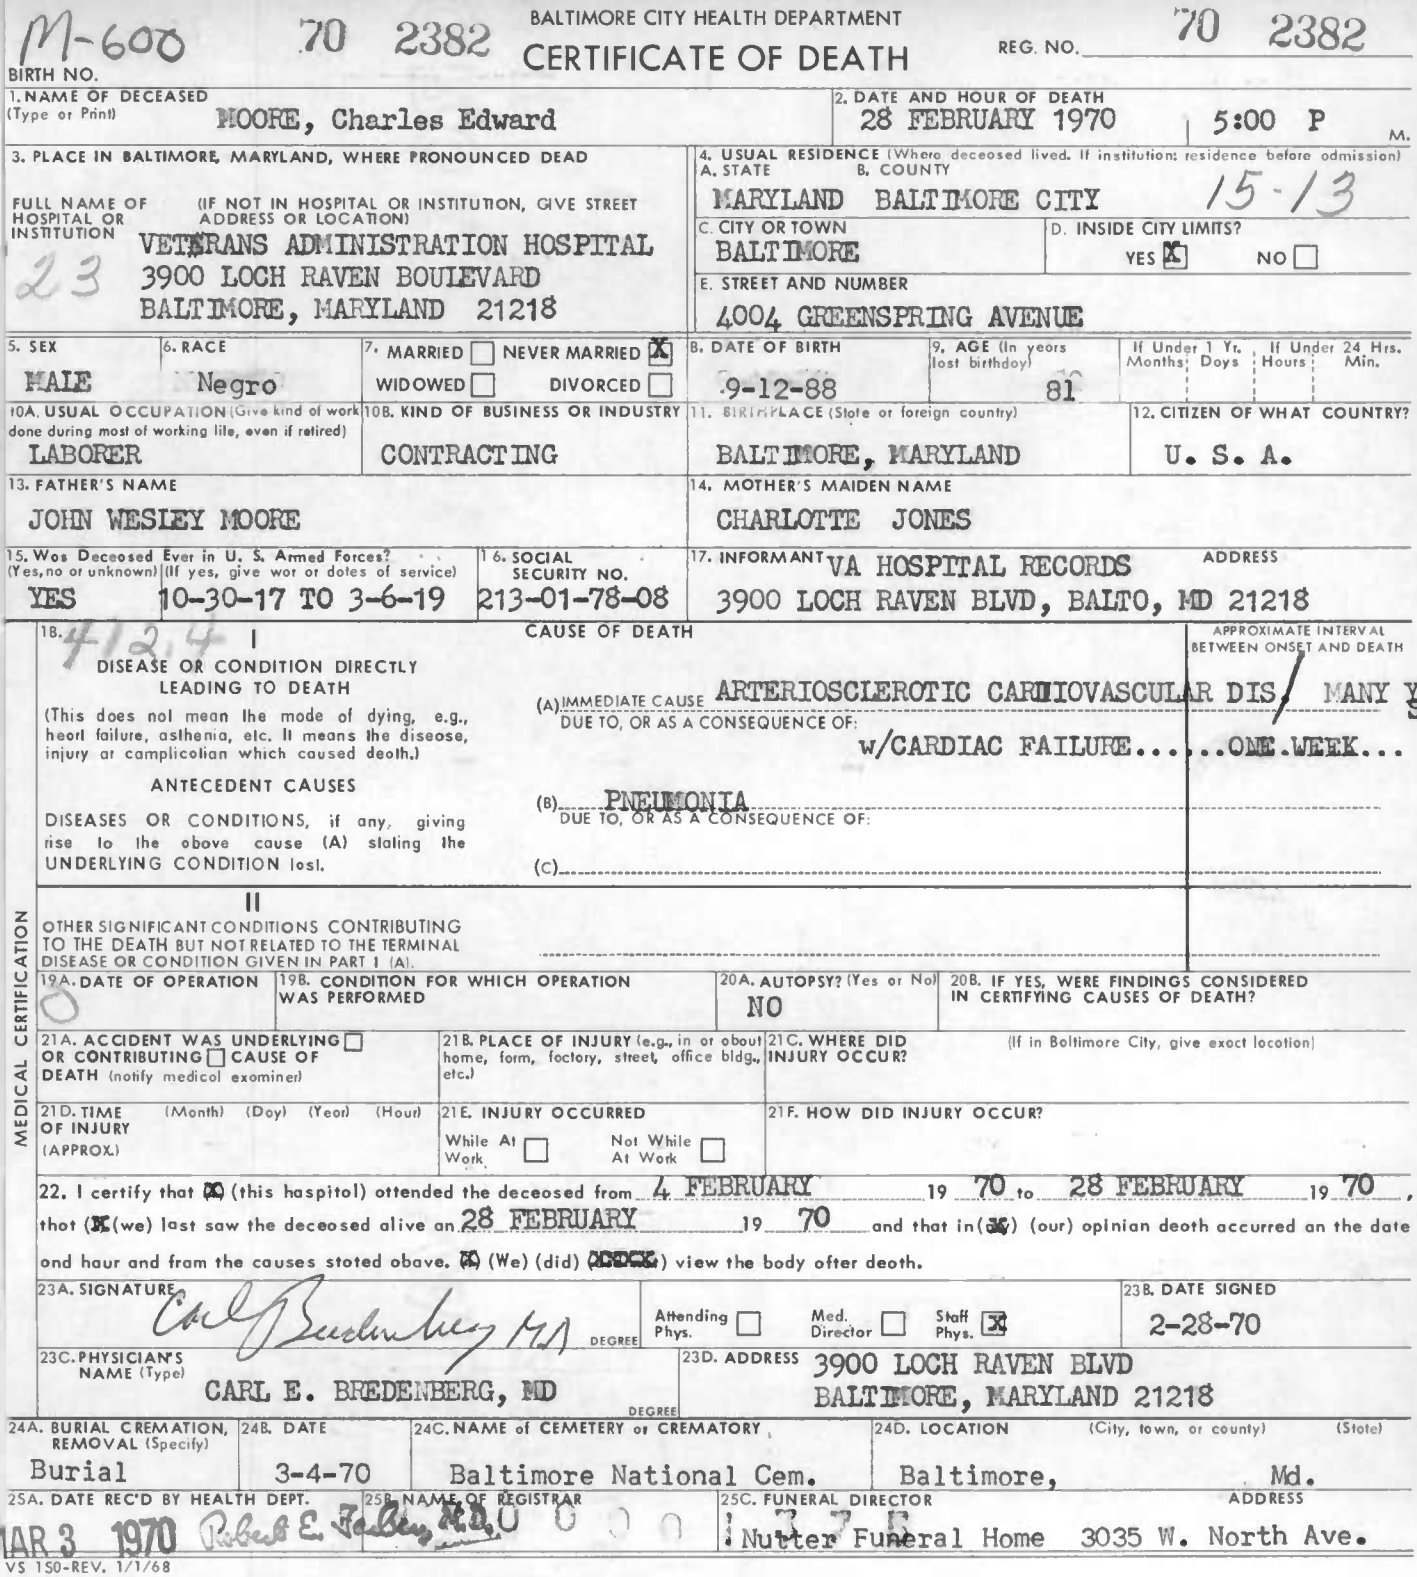 M-600 70 2382 BALTIMORE CITY HEALTH DEPARTMENT 70 2382
CERTIFICATE OF DEATH REG. NO.
BIRTH NO.
1. NAME OF DECEASED
(Type or Print) MOORE, Charles Edward
2. DATE AND HOUR OF DEATH
28 FEBRUARY 1970 5:00 P M.
3. PLACE IN BALTIMORE, MARYLAND, WHERE PRONOUNCED DEAD
FULL NAME OF HOSPITAL OR INSTITUTION
(IF NOT IN HOSPITAL OR INSTITUTION, GIVE STREET ADDRESS OR LOCATION)
23
VETERANS ADMINISTRATION HOSPITAL
3900 LOCH RAVEN BOULEVARD
BALTIMORE, MARYLAND 21218
4. USUAL RESIDENCE (Where deceased lived. If institution: residence before admission)
A. STATE B. COUNTY
MARYLAND BALTIMORE CITY 15-13
C. CITY OR TOWN
BALTIMORE
D. INSIDE CITY LIMITS?
YES X NO
E. STREET AND NUMBER
4004 GREENSPRING AVENUE
5. SEX
MALE
6. RACE
Negro
7. MARRIED NEVER MARRIED X
WIDOWED DIVORCED
8. DATE OF BIRTH
9-12-88
9. AGE (In years last birthday)
81
If Under 1 Yr. If Under 24 Hrs.
Months Days Hours Min.
10A. USUAL OCCUPATION (Give kind of work done during most of working life, even if retired)
LABORER
10B. KIND OF BUSINESS OR INDUSTRY
CONTRACTING
11. BIRTHPLACE (State or foreign country)
BALTIMORE, MARYLAND
12. CITIZEN OF WHAT COUNTRY?
U. S. A.
13. FATHER'S NAME
JOHN WESLEY MOORE
14. MOTHER'S MAIDEN NAME
CHARLOTTE JONES
15. Was Deceased Ever in U. S. Armed Forces?
(Yes, no or unknown) (If yes, give war or dates of service)
YES 10-30-17 TO 3-6-19
16. SOCIAL SECURITY NO.
213-01-78-08
17. INFORMANT VA HOSPITAL RECORDS ADDRESS
3900 LOCH RAVEN BLVD, BALTO, MD 21218
18. 412.4 I
CAUSE OF DEATH
APPROXIMATE INTERVAL
BETWEEN ONSET AND DEATH
DISEASE OR CONDITION DIRECTLY
LEADING TO DEATH
(This does not mean the mode of dying, e.g.,
heart failure, asthenia, etc. It means the disease,
injury or complication which caused death.)
(A) IMMEDIATE CAUSE ARTERIOSCLEROTIC CARDIOVASCULAR DIS/ MANY YS
DUE TO, OR AS A CONSEQUENCE OF:
w/CARDIAC FAILURE......ONE.WEEK...
ANTECEDENT CAUSES
DISEASES OR CONDITIONS, if any, giving
rise to the above cause (A) stating the
UNDERLYING CONDITION last.
(B) PNEUMONIA
DUE TO, OR AS A CONSEQUENCE OF:
(C)
II
OTHER SIGNIFICANT CONDITIONS CONTRIBUTING
TO THE DEATH BUT NOT RELATED TO THE TERMINAL
DISEASE OR CONDITION GIVEN IN PART I (A).
MEDICAL CERTIFICATION
19A. DATE OF OPERATION
0
19B. CONDITION FOR WHICH OPERATION
WAS PERFORMED
20A. AUTOPSY? (Yes or No)
NO
20B. IF YES, WERE FINDINGS CONSIDERED
IN CERTIFYING CAUSES OF DEATH?
21A. ACCIDENT WAS UNDERLYING
OR CONTRIBUTING CAUSE OF
DEATH (notify medical examiner)
21B. PLACE OF INJURY (e.g., in or about
home, farm, factory, street, office bldg.,
etc.)
21C. WHERE DID (If in Baltimore City, give exact location)
INJURY OCCUR?
21D. TIME (Month) (Day) (Year) (Hour)
OF INJURY
(APPROX.)
21E. INJURY OCCURRED
While At Work Not While At Work
21F. HOW DID INJURY OCCUR?
22. I certify that (X) (this hospital) attended the deceased from 4 FEBRUARY 19 70 to 28 FEBRUARY 19 70,
that (X(we) last saw the deceased alive on 28 FEBRUARY 19 70 and that in( ) (our) opinion death occurred on the date
and hour and from the causes stated above. (X) (We) (did) ( ) view the body after death.
23A. SIGNATURE
Carl Bredenberg MD DEGREE
Attending Phys. Med. Director Staff Phys. X
23B. DATE SIGNED
2-28-70
23C. PHYSICIAN'S
NAME (Type)
CARL E. BREDENBERG, MD DEGREE
23D. ADDRESS 3900 LOCH RAVEN BLVD
BALTIMORE, MARYLAND 21218
24A. BURIAL CREMATION,
REMOVAL (Specify)
Burial
24B. DATE
3-4-70
24C. NAME of CEMETERY or CREMATORY
Baltimore National Cem.
24D. LOCATION (City, town, or county) (State)
Baltimore, Md.
25A. DATE REC'D BY HEALTH DEPT.
MAR 3 1970
25B. NAME OF REGISTRAR
Robert E. Farber, M.D.
25C. FUNERAL DIRECTOR ADDRESS
Nutter Funeral Home 3035 W. North Ave.
VS 150-REV. 1/1/68